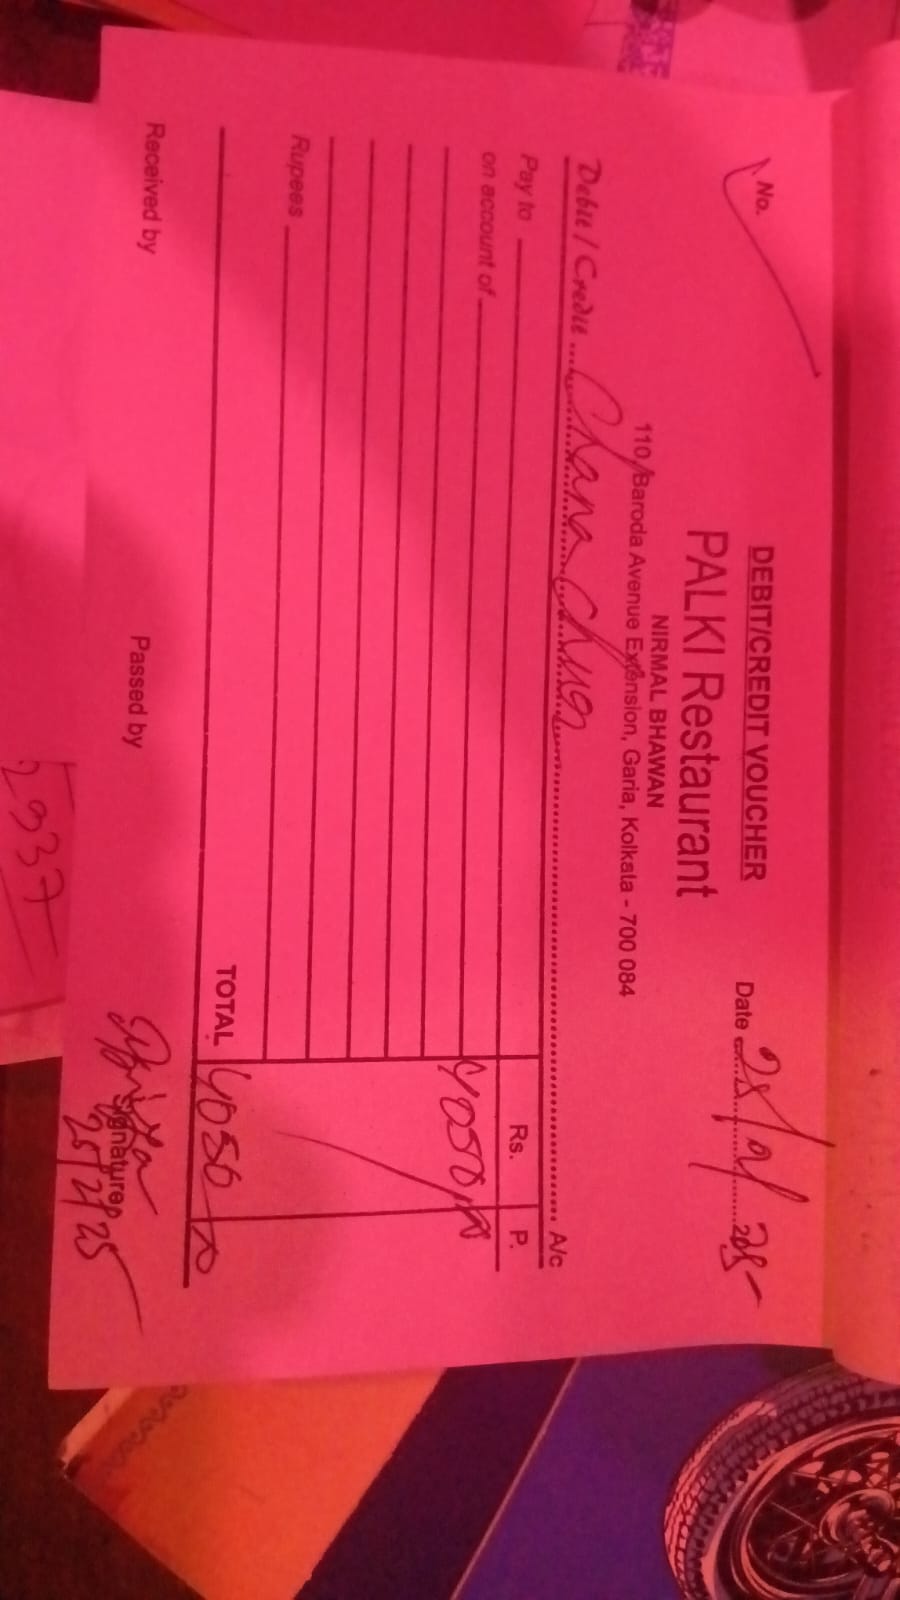 No.
DEBIT/CREDIT VOUCHER
Date 28/2/2025
PALKI Restaurant
NIRMAL BHAWAN
110/Baroda Avenue Extension, Garia, Kolkata - 700 084
Debit / Credit Chana Chur A/c
Pay to Rs. P.
on account of 4050
Rupees
TOTAL 4050
Received by Passed by Signature
25/2/25
2937